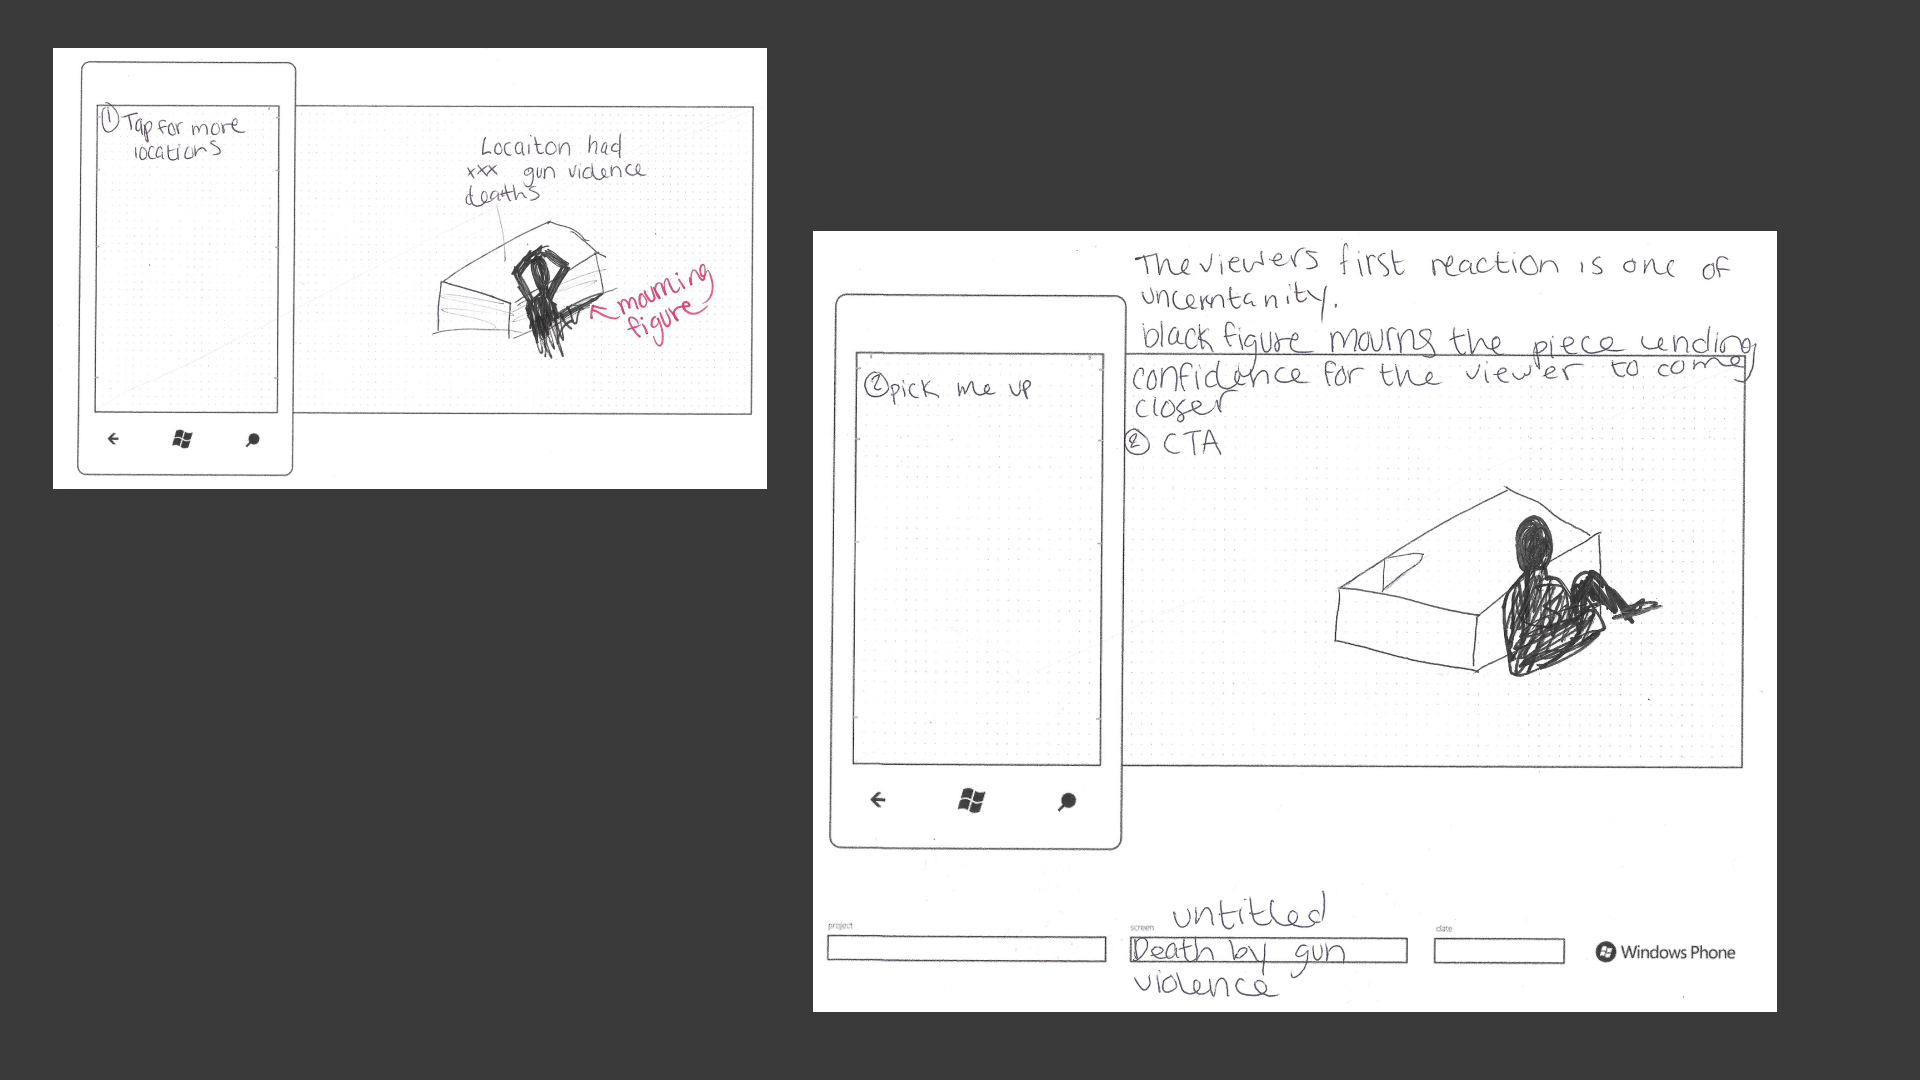 ① Tap for more
locations
Locaiton had
xxx gun violence
deaths
mourning
figure
The viewers first reaction is one of
uncerntanity.
black figure mourns the piece lending
confidence for the viewer to come
closer
② CTA
② pick me up
project
screen
untitled
Death by gun
violence
date
Windows Phone